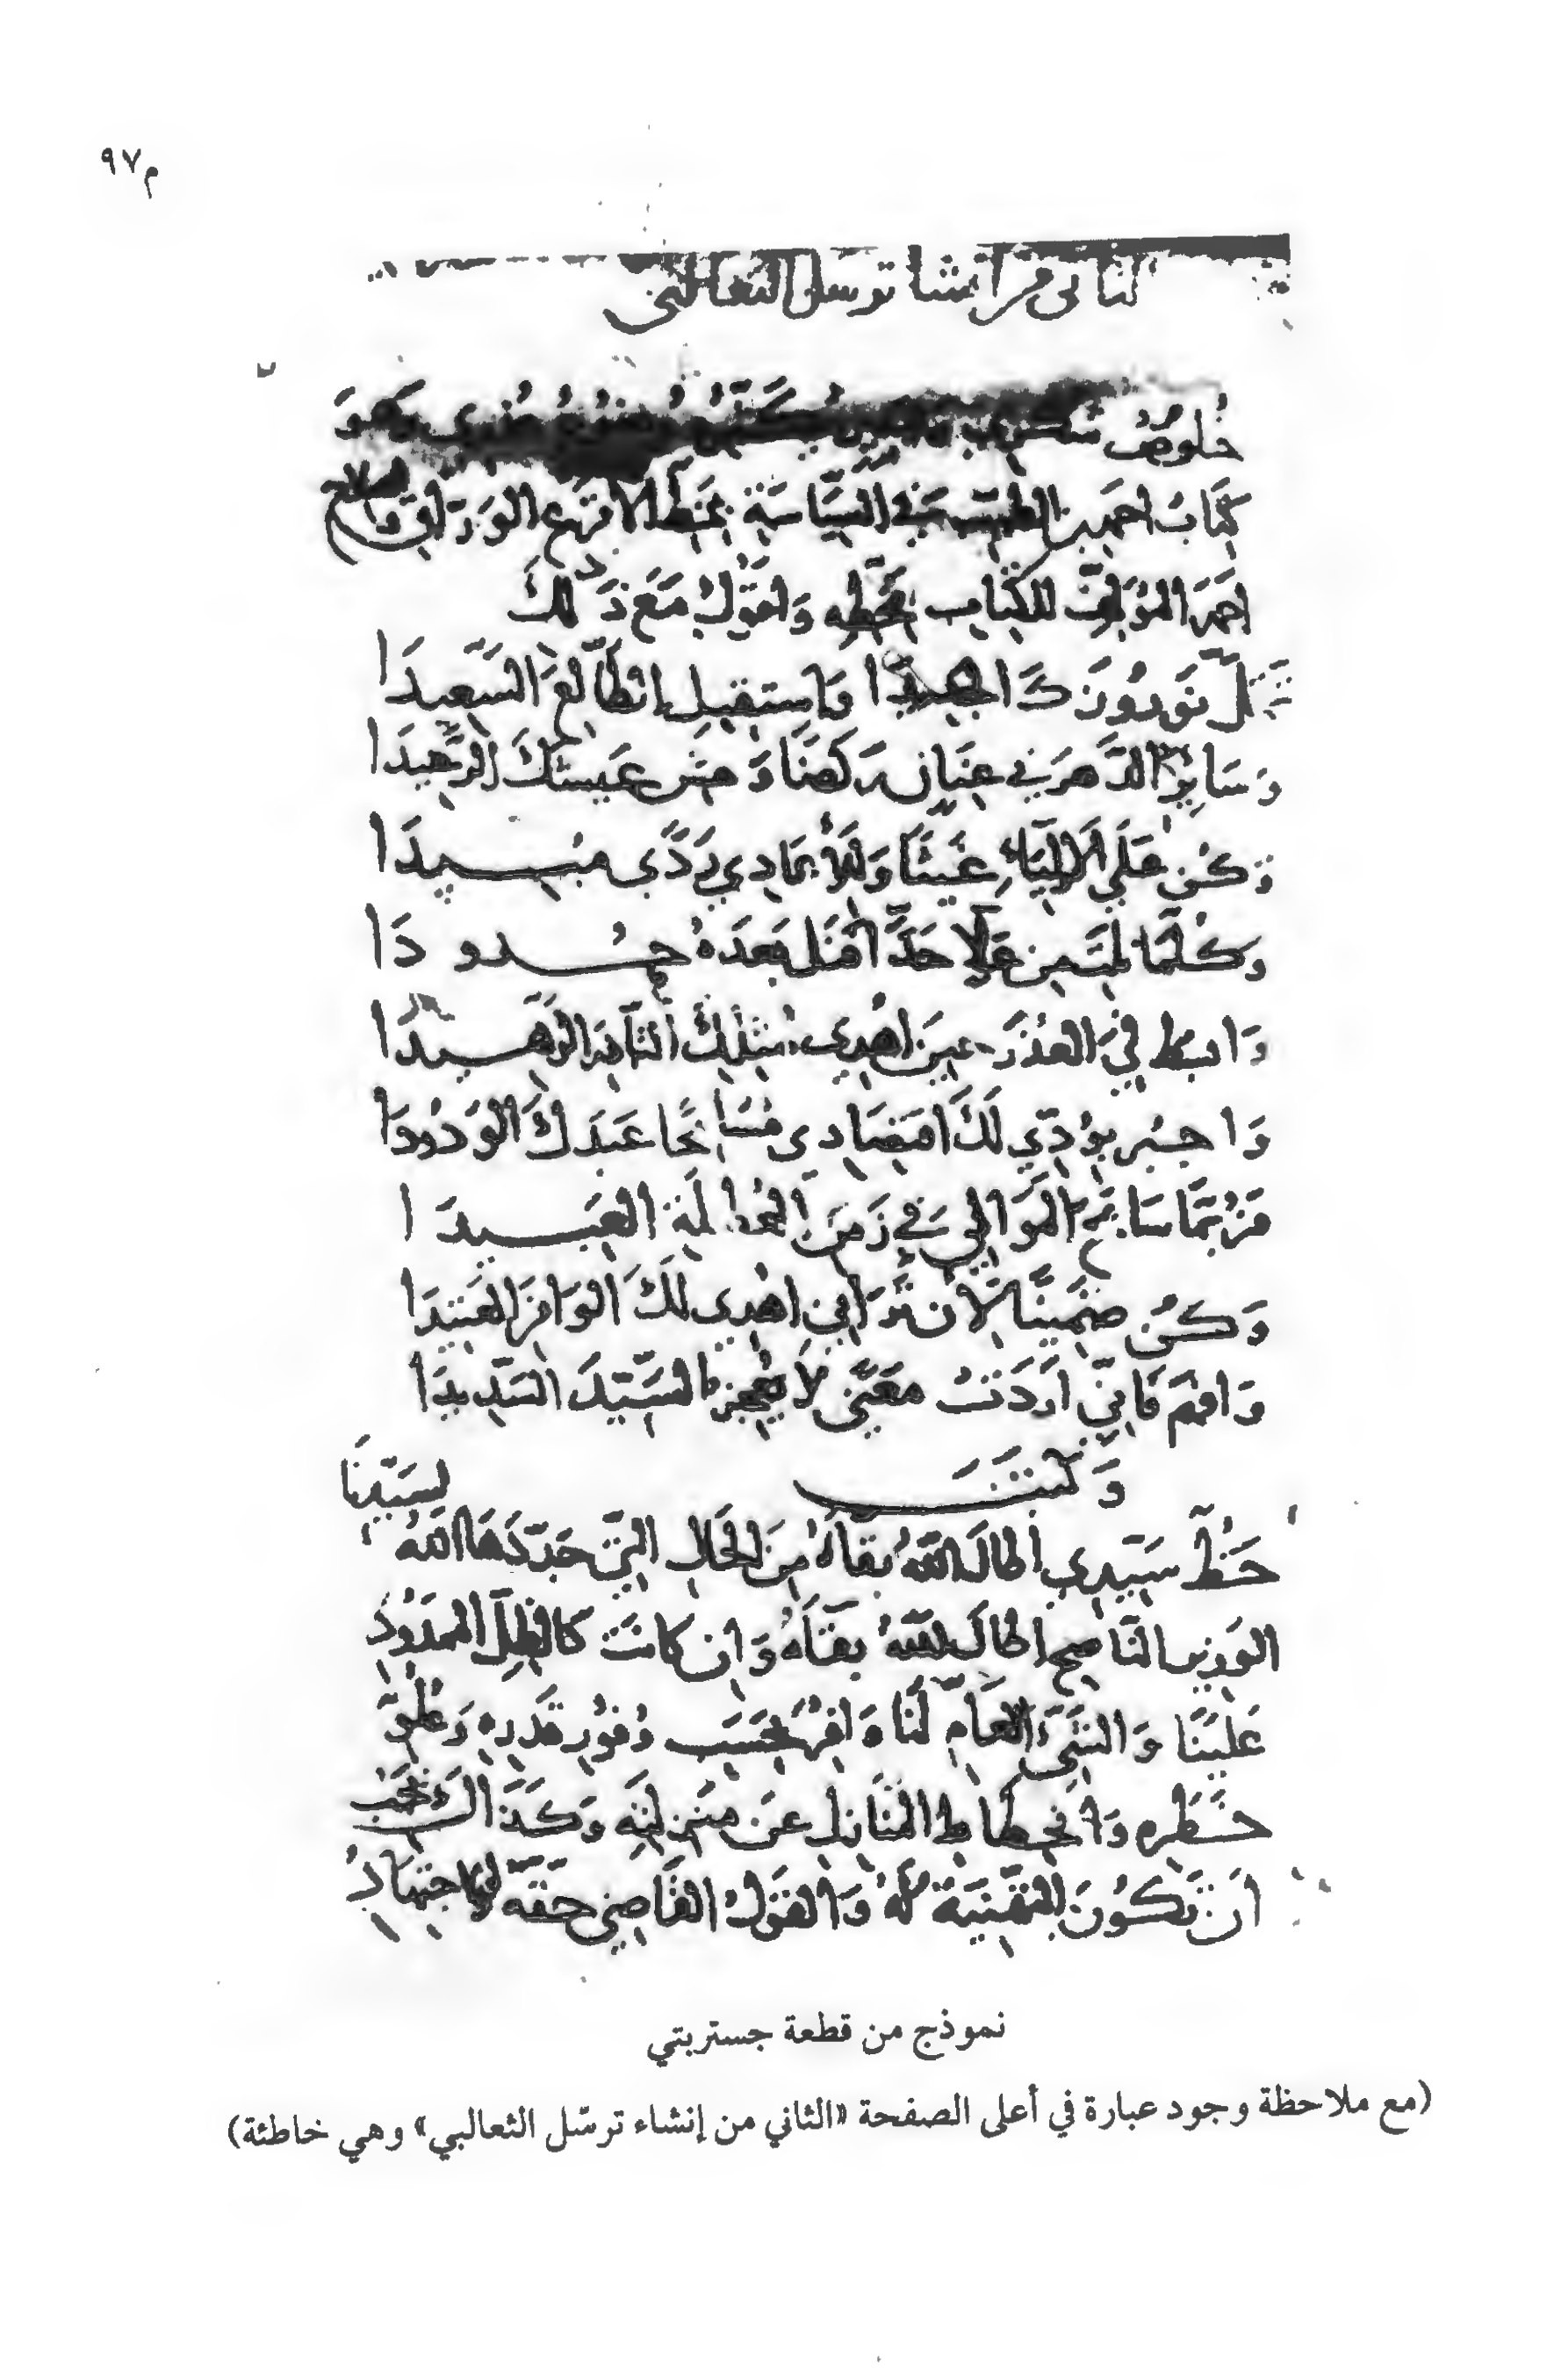 م ٩٧
الثاني من انشا ترسل الثعالبي
خُلوصُ وَهوَ
كِتَابُ احمَد بن الطيب في السِّيَاسَةِ بخطِّ الاقرَع الوَرّاق واصلاح
احمَدَ المؤلف للكتاب بخطِّه وَاقُولُ مَعَ ذَلكَ
نَورُوزَكَ الجديدَا وَاستقبل الطَّالعَ السَّعِيدَا
وَسَايِرْ الدَّهرَ في عِنَانٍ رَكضًا وَعِش عَيشَكَ الرَّغيدَا
وَكُن عَلَى الأوليَاءِ غيثًا وَللأعَادِي رَدًى مُبيدَا
وَكُلَّمَا حَدًّا بَعدَهُ حُدودَا
وَابسط لي العُذرَ حينَ اهدي لمثلك التافهَ الزَّهيدَا
وَاجبُر بوُدّي لَكَ اقتصَادي مُسَامحًا عَبدَكَ الوَدُودَا
فَرُبَّمَا سَامَحَ المَوَالي في زَمَن العُطلَةِ العَبيدَا
وَكُن ضَمينًا لأن تَرَاني اهدي لَكَ الوَافِرَ العَتيدَا
وَافهَم فَاِنّي اَرَدتُ مَعنًى لا يُعجِزُ السَّيّدَ السَّديدَا
وَكَتَبَ
لسَيّدنَا
حَظُّ سَيّدي اطالَ اللهُ بقاهُ مِنَ الحَالِ التي جَدّدَهَا اللهُ
الوَزير النّاصح اطَالَ اللهُ بقَاهُ وَاِن كانَت كالظِلِّ الممدُودِ
عَلَينَا وَالفَيءِ العَامِّ لَنَا وَافِرٌ بحَسَبِ وُفُورِ قَدرِهِ وَعُلُوِّ
خَطَرِه وَانحِطَاطِ المنَازِلِ عَن مَنزِلتِه وَكَذَاكَ يَجبُ
اَن تَكُونَ التهنِيَة لَهُ وَالقَولُ القَاضِي حَقّه لاجتهَادُ
نموذج من قطعة جستربتي
(مع ملاحظة وجود عبارة في أعلى الصفحة «الثاني من إنشاء ترسّل الثعالبي» وهي خاطئة)